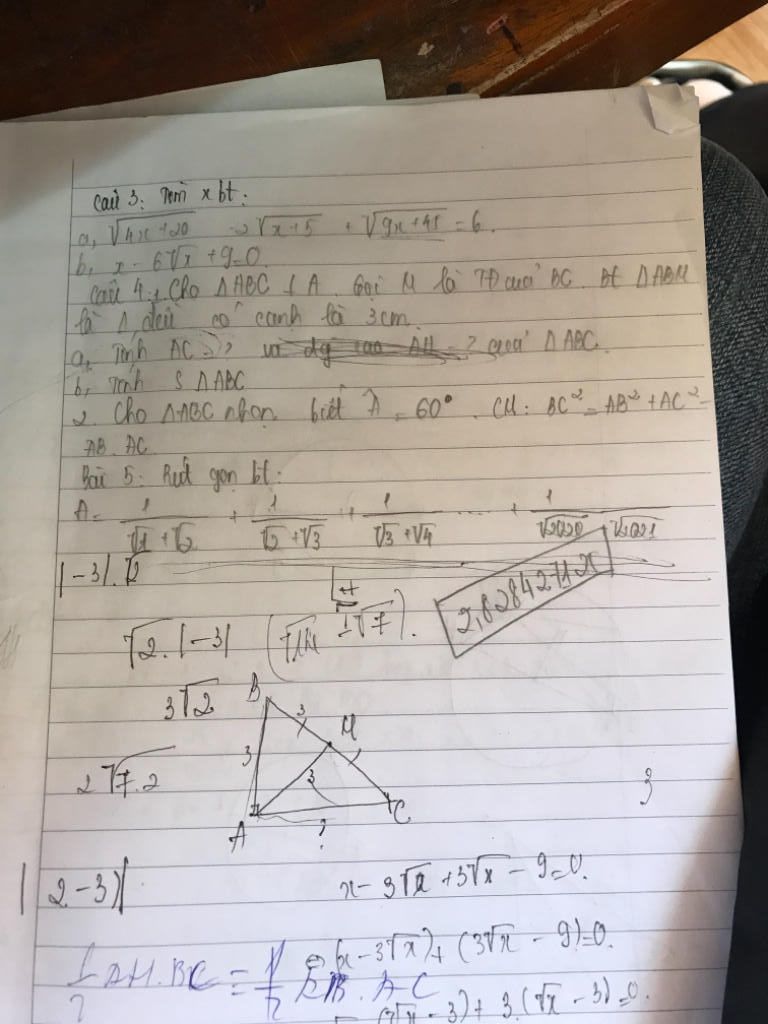 Câu 3: Tìm x bt:
a, √4x+20 - 2√x+5 + √9x+45 = 6.
b, x - 6√x + 9=0.
Câu 4: 1. Cho ΔABC ⊥ A. Gọi M là TĐ của BC. Bt ΔABM
là Δ đều có cạnh là 3cm
a, Tính AC = ? của ΔABC.
b, Tính S ΔABC
2. Cho ΔABC nhọn biết Â = 60°. CM: BC² = AB² + AC² -
AB. AC
Bài 5: Rút gọn bt:
A= 1/(√1 + √2) + 1/(√2 + √3) + 1/(√3 + √4) .... + 1/(√2020 √2021)
|-3|.√2
√2.|-3| (√14 - √7).
2,828427125
3√2
B
3
M
3
2√7.2
3
3
A
C
?
| 2-3)|
x - 3√x + 3√x - 9=0.
⇔ (x - 3√x) + (3√x - 9)=0.
1/2 AH.BC = 1/2 AB. AC
(√x - 3) + 3.(√x - 3)=0.